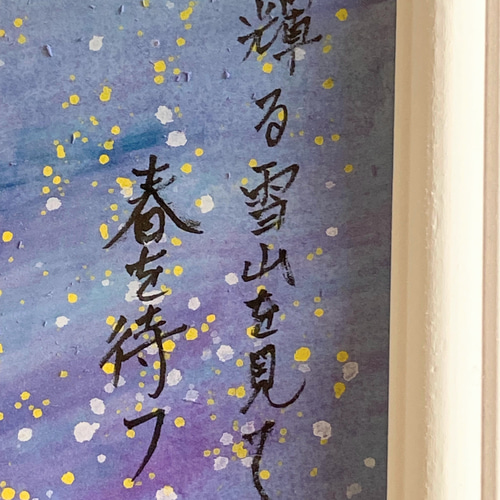 輝る雪山を見て
春を待つ